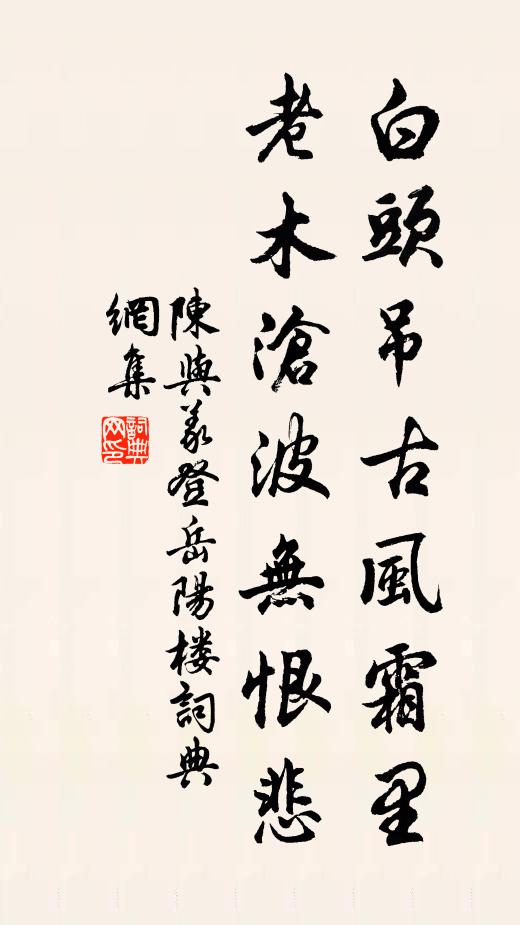 白頭吊古風霜里
老木滄波無恨悲
陳與義登岳陽楼詞典
網集
詞典網印